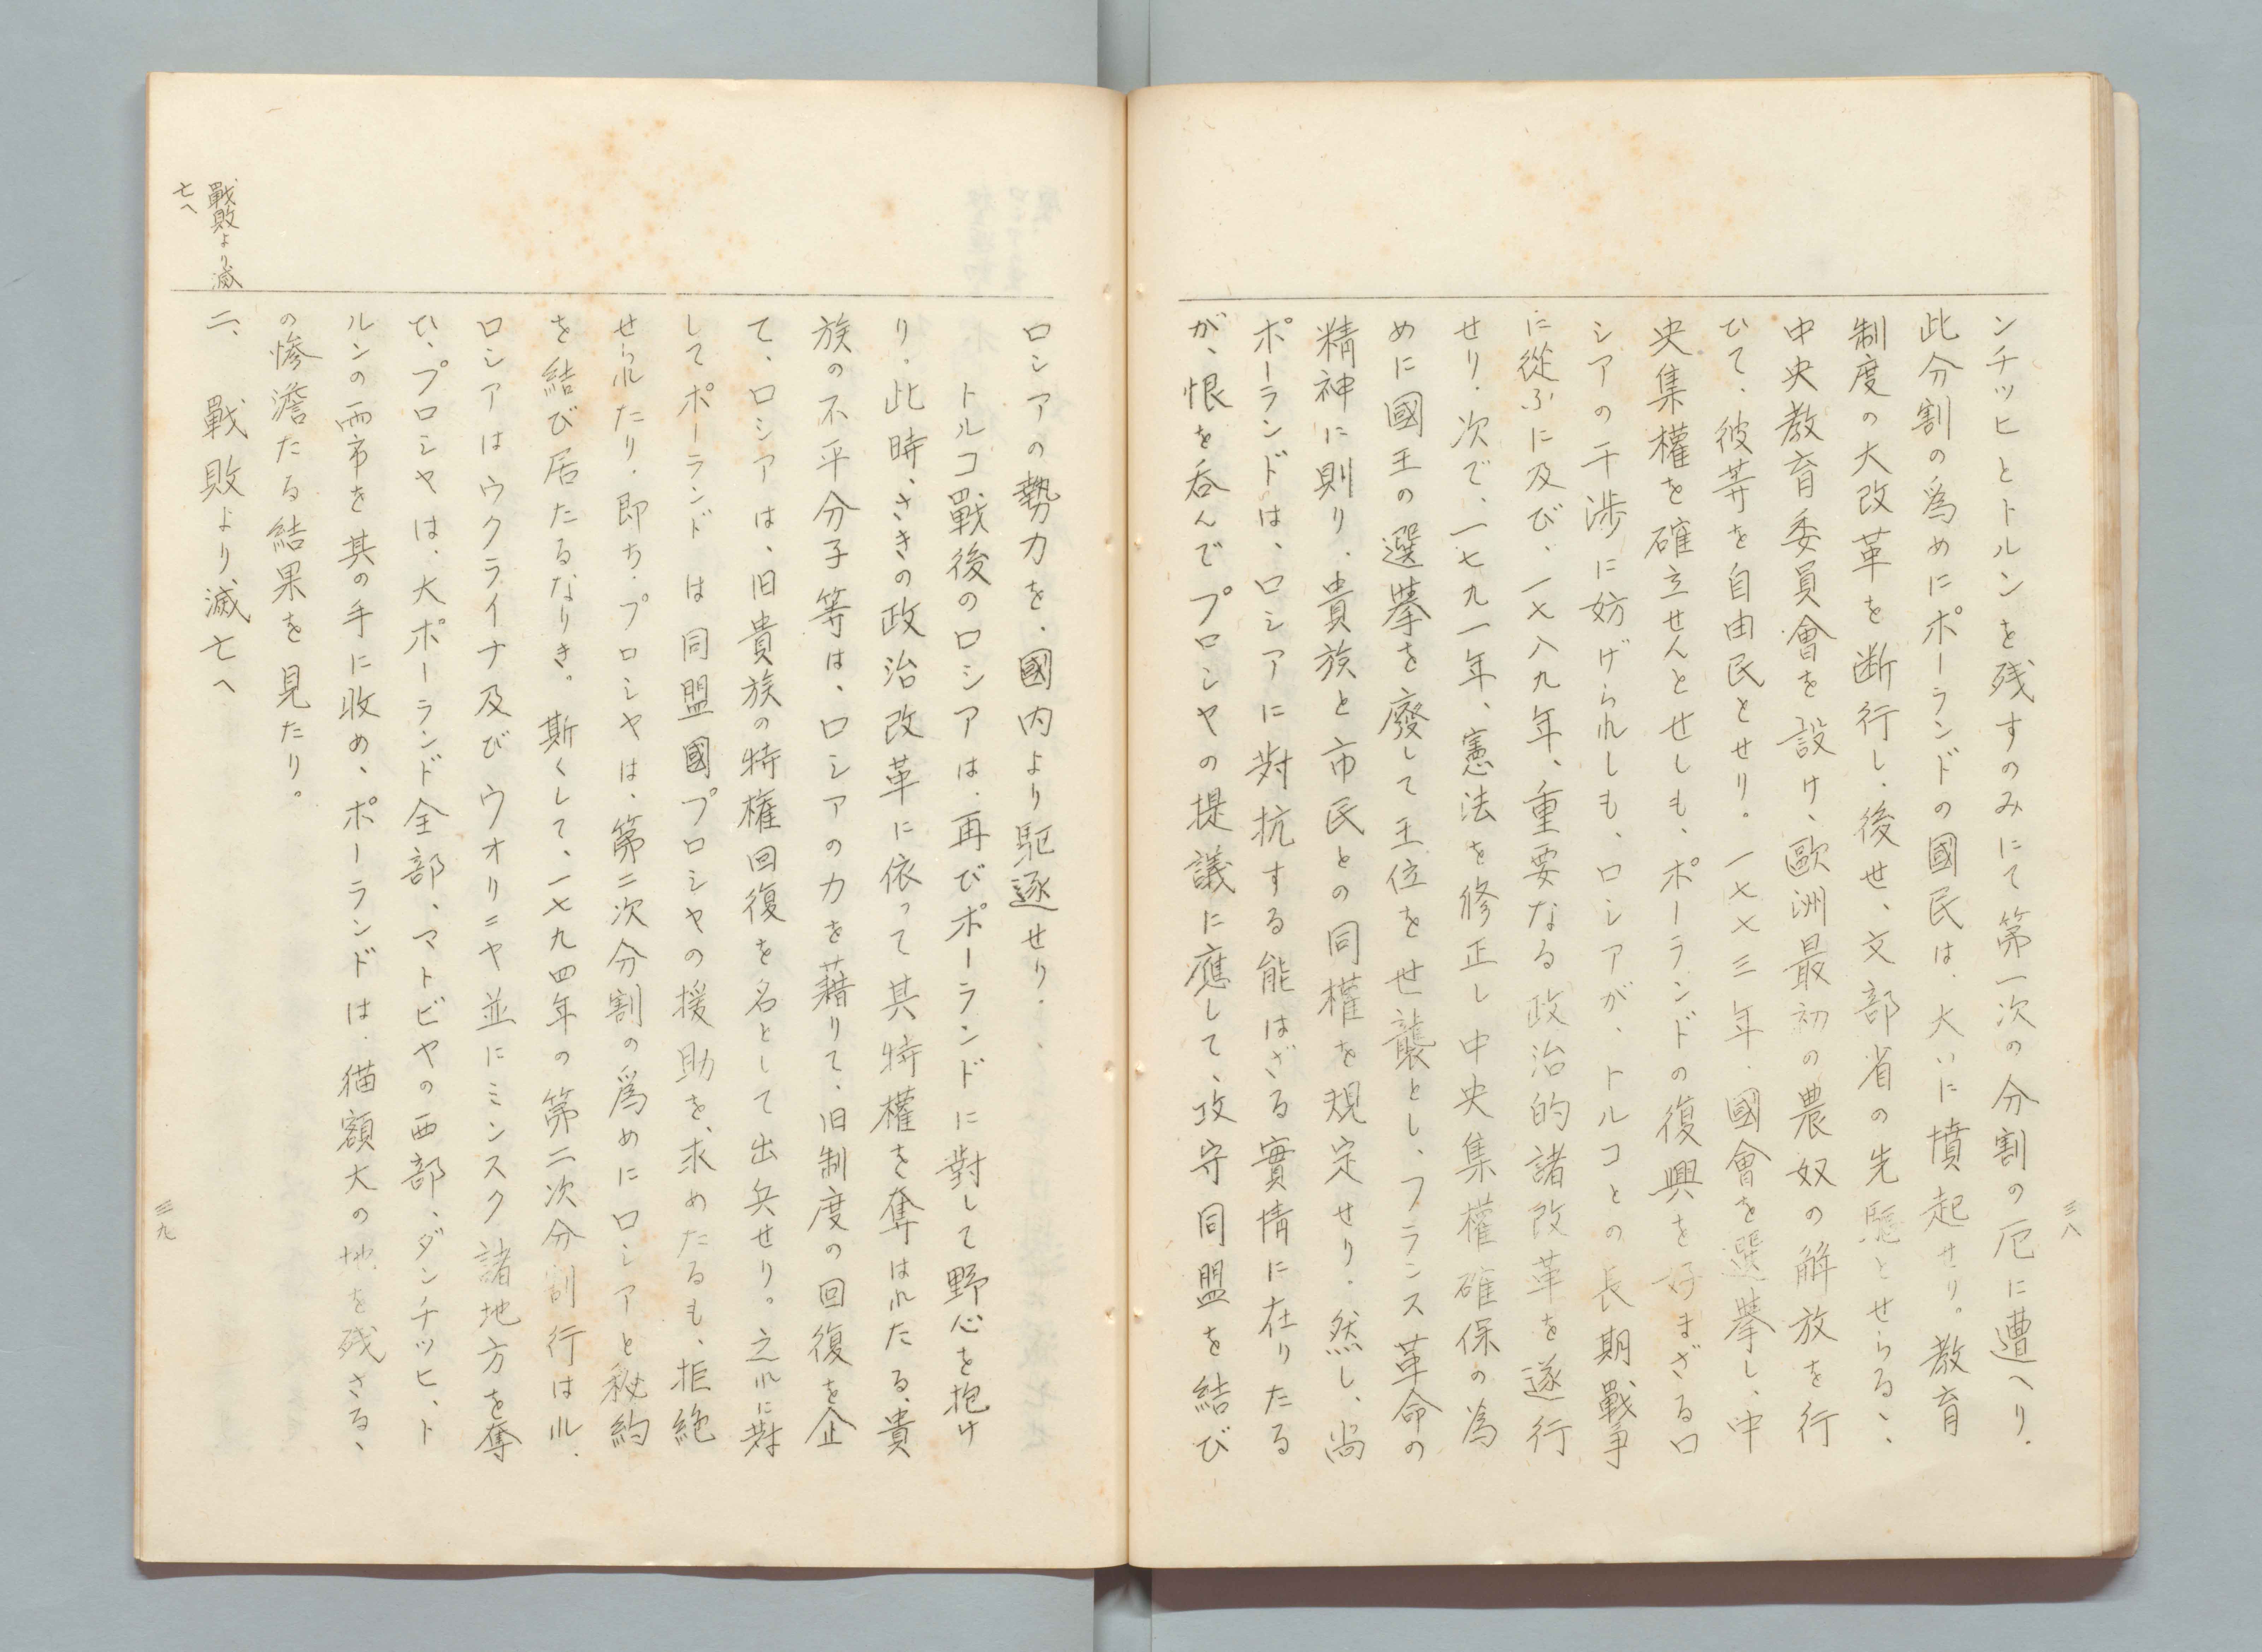 ンチッヒとトルンを残すのみにて第一次の分割の厄に遭へり.
此分割の爲めにポーランドの國民は、大いに憤起せり。教育
制度の大改革を断行し、後世、文部省の先駆とせらるゝ、
中央教育委員會を設け、歐洲最初の農奴の解放を行
ひて、彼等を自由民とせり。一七七三年、國會を選擧し、中
央集權を確立せんとせしも、ポーランドの復興を好まざるロ
シアの干渉に妨げられしも、ロシアが、トルコとの長期戰爭
に從ふに及び、一七八九年、重要なる政治的諸改革を遂行
せり.次で、一七九一年、憲法を修正し中央集權確保の為
めに國王の選擧を廢して王位を世襲とし、フランス革命の
精神に則り.貴族と市民との同權を規定せり.然し、尚
ポーランドは、ロシアに対抗する能はざる實情に在りたる
が、恨を呑んでプロシヤの提議に應して、攻守同盟を結び
三八
ロシアの勢力を、國内より駆逐せり.
トルコ戰後のロシアは、再びポーランドに對して野心を抱け
り.此時、さきの政治改革に依って其特權を奪はれたる、貴
族の不平分子等は、ロシアの力を藉りて、旧制度の回復を企
て、ロシアは、旧貴族の特権回復を名として出兵せり。之れに対
してポーランドは同盟國プロシヤの援助を、求めたるも、拒絶
せられたり.即ち.プロシヤは、第二次分割の爲めにロシアと秘約
を結び居たるなりき。斯くして、一七九四年の第二次分割行はれ.
ロシアはウクライナ及びウオリニヤ並にミンスク諸地方を奪
ひ、プロシヤは、大ポーランド全部、マトビヤの西部、ダンチッヒ、ト
ルンの両市を其の手に收め、ポーランドは.猫額大の地を残さる、
の惨澹たる結果を見たり。
二、戰敗より滅亡へ
戰敗より滅
亡へ
三九